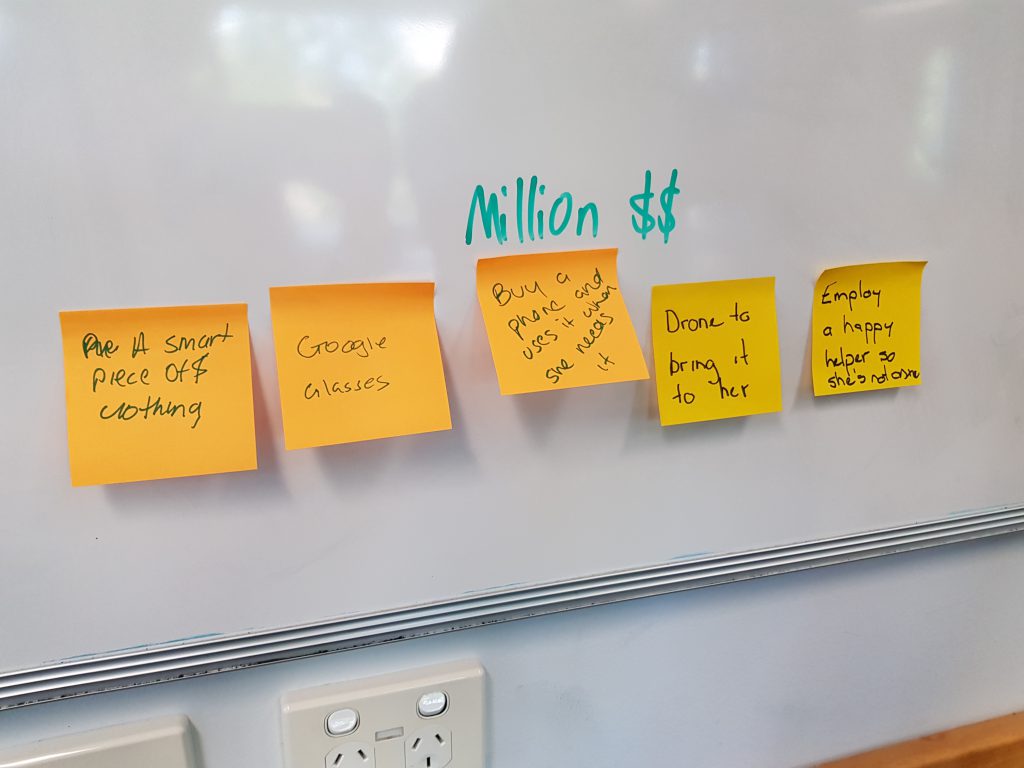 Million $$
A smart
piece of
clothing
Google
Glasses
Buy a
phone and
uses it when
she needs
it
Drone to
bring it
to her
Employ
a happy
helper so
she's not alone